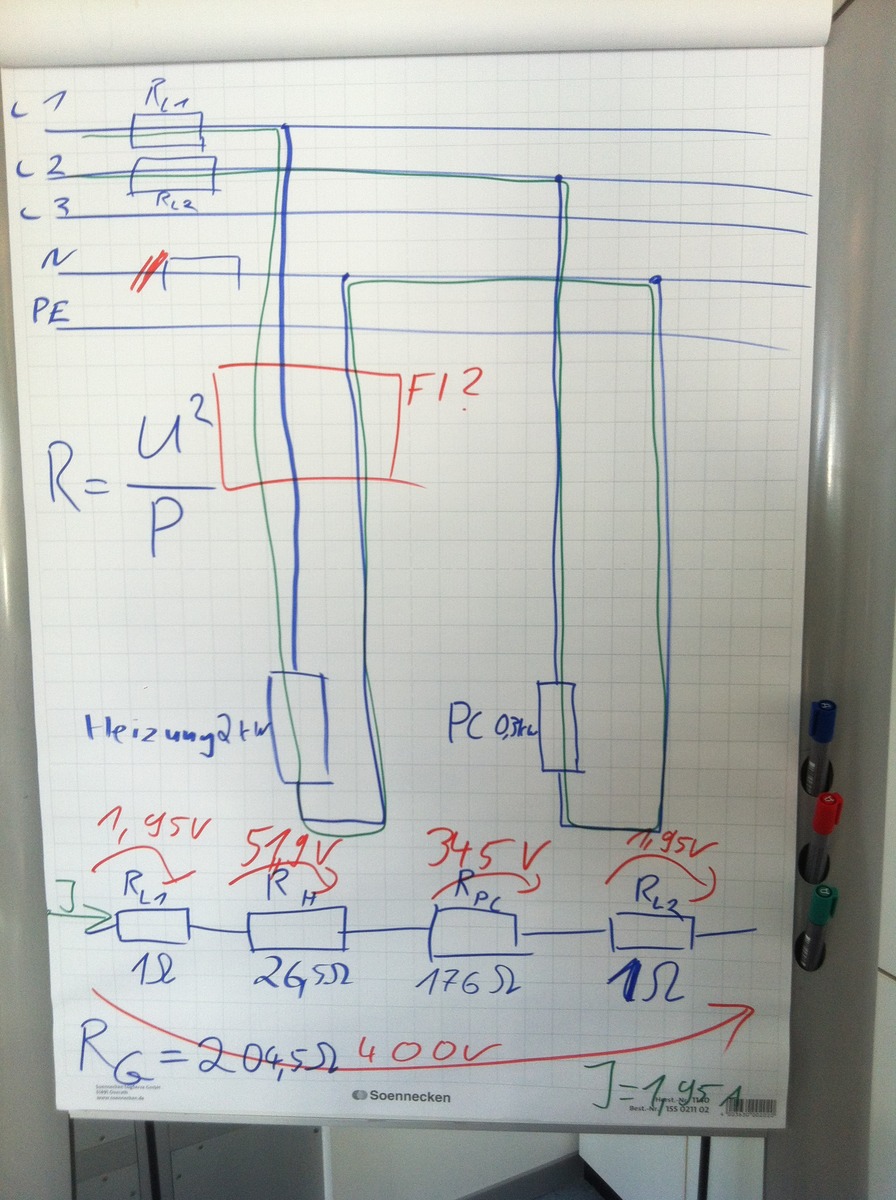 L1
R L1
L2
R L2
L3
N
PE
FI?
R = U² / P
Heizung 2kW
PC 0,3kW
1,95V 51,9V 345V 1,95V
I R L1 R H R PC R L2
1Ω 26,5Ω 176Ω 1Ω
R G = 204,5Ω 400V
I = 1,95A
Soennecken
www.soennecken.de
Best.-Nr. 155 0211 02